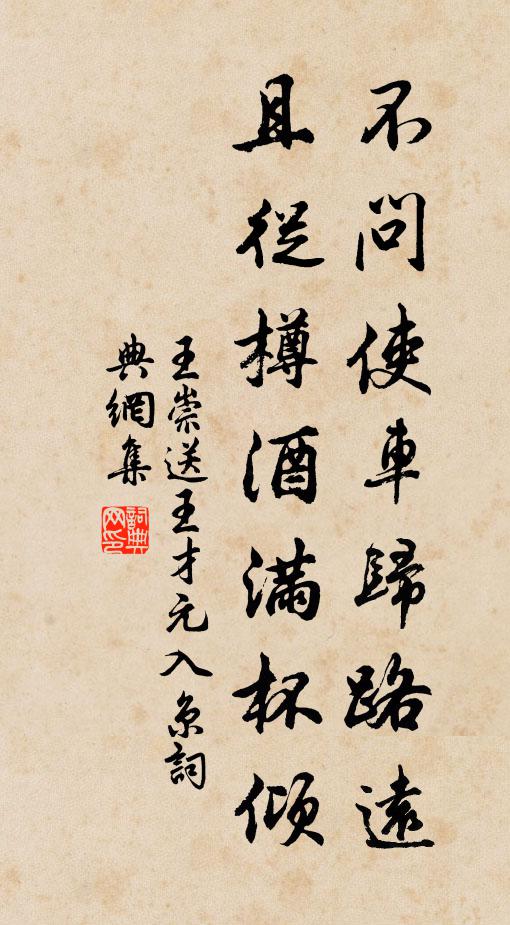 不問使車歸路遠
且從樽酒滿杯傾
王崇送王才元入京詞
典網集
詞典網印